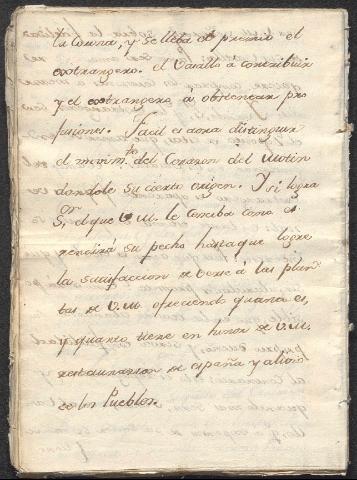 la Corona, y se lleba el premio el
extrangero. el Vasallo a contribuir
y el extrangero á obstentar pro
fusiones. Facil es aora distinguir
el movim.to del Corazon del Motin
dandole su cierto origen. Y si logra
S.or el que V.M. le conciba como es
rendirá su pecho hasta que logre
la satisfaccion de verse á las plan
tas de V.M. ofreciendo quanto es,
y quanto tiene en honor de V.M.
restauracion de españa y alivio
de los Pueblos.